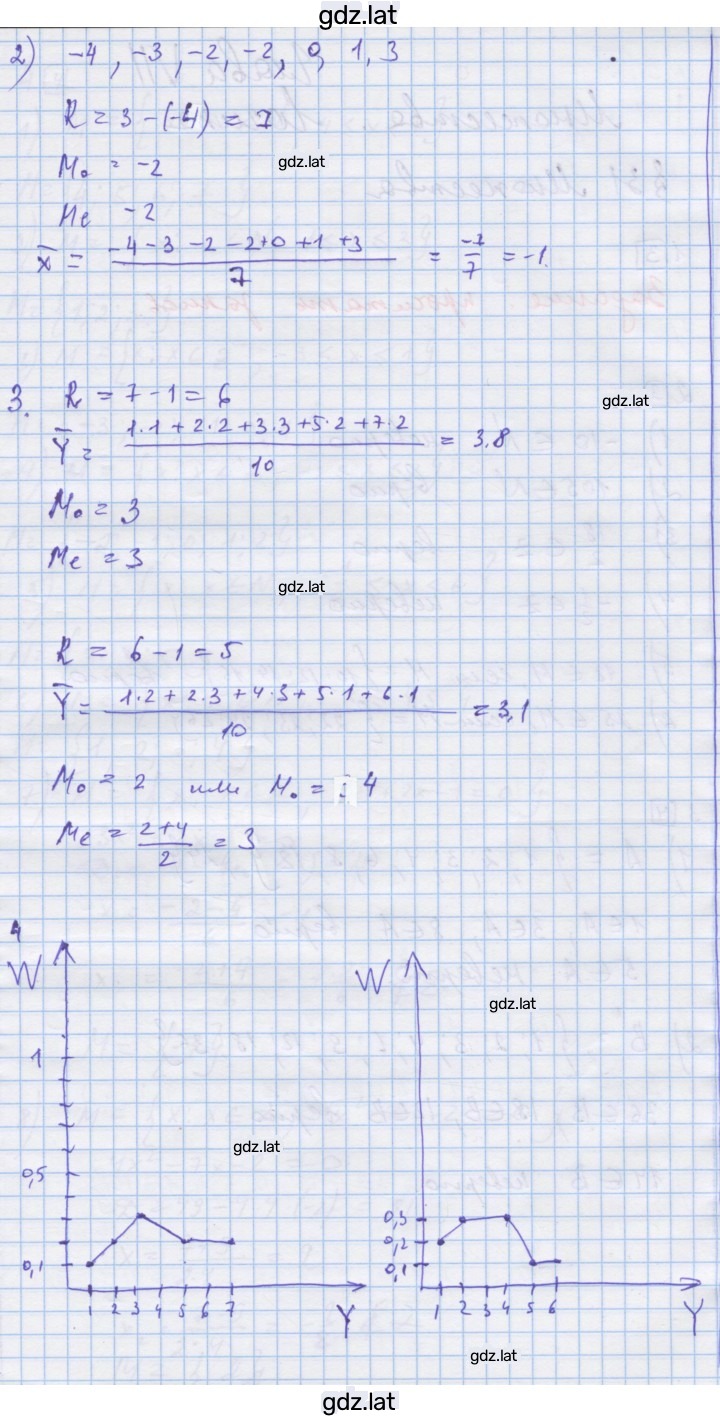 gdz.lat
2) -4, -3, -2, -2, 0, 1, 3
R = 3 - (-4) = 7
Mo = -2
gdz.lat
Me -2
x̄ = (-4 - 3 - 2 - 2 + 0 + 1 + 3)/7 = -7/7 = -1.
3. R = 7 - 1 = 6
gdz.lat
Ȳ = (1·1 + 2·2 + 3·3 + 5·2 + 7·2)/10 = 3,8
Mo = 3
Me = 3
gdz.lat
R = 6 - 1 = 5
Ȳ = (1·2 + 2·3 + 4·3 + 5·1 + 6·1)/10 = 3,1
Mo = 2 или Mo = 4
Me = (2+4)/2 = 3
4
W W
gdz.lat
1
gdz.lat
0,5
0,3
0,2
0,1 0,1
1 2 3 4 5 6 7 1 2 3 4 5 6
Y Y
gdz.lat
gdz.lat